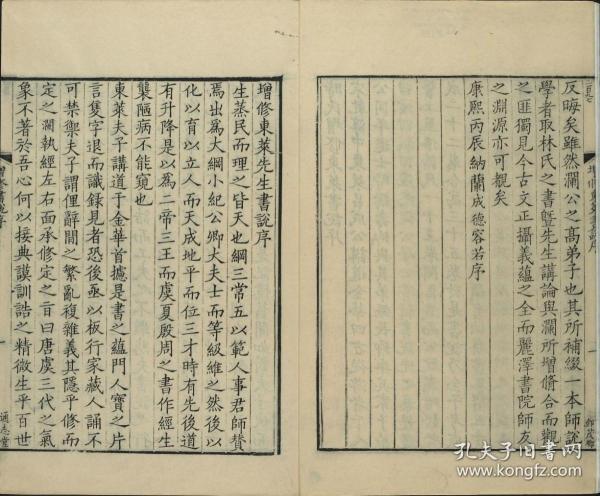 反晦矣雖然瀾公之高弟子也其所補綴一本師說
學者取林氏之書曁先生講論與瀾所增脩合而觀
之匪獨見今古文正攝義蘊之全而麗澤書院師友
之淵源亦可覩矣
康熙丙辰納蘭成德容若序
增修東萊先生書說序
生蒸民而理之皆天也綱三常五以範人事君師贊
焉出爲大綱小紀公卿大夫士而等級維之然後以
化以育以立人而天成地平而位三才時有先後道
有升降是以爲二帝三王而虞夏殷周之書作經生
襲陋病不能窺也
東萊夫子講道于金華首攄是書之蘊門人寶之片
言隻字退而識錄見者恐後亟以板行家藏人誦不
可禁禦夫子謂俚辭間之繁亂複雜義其隱乎修而
定之瀾執經左右面承修定之旨曰唐虞三代之氣
象不著於吾心何以接典謨訓誥之精微生乎百世
增修書說序
通志堂
孔夫子旧书网
www.kongfz.com